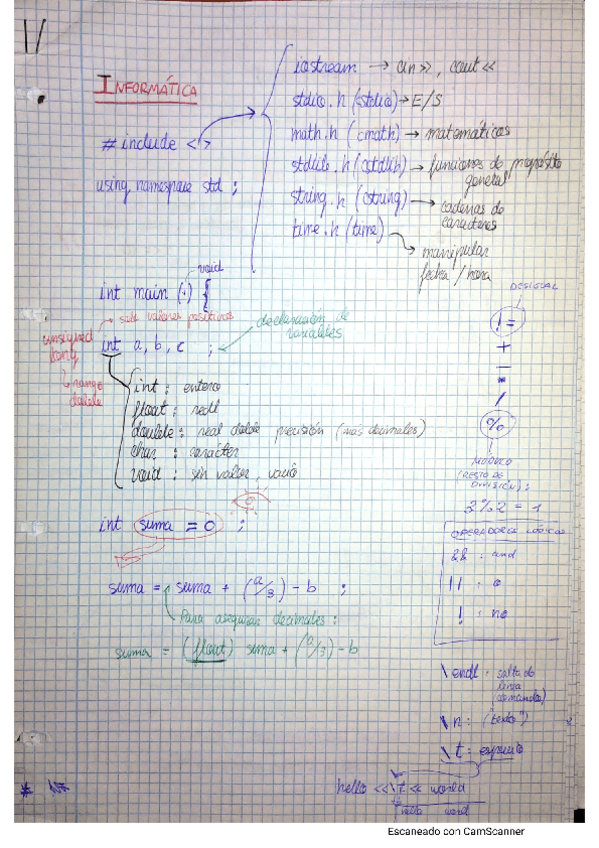 1/
INFORMÁTICA
#include < >
using namespace std ;
iostream → cin >> , cout <<
stdio.h (cstdio) → E/S
math.h (cmath) → matemáticas
stdlib.h (cstdlib) → funciones de propósito
general
string.h (cstring) → cadenas de
caracteres
time.h (time)
manipular
fecha / hora
void
int main (·) {
→ solo valores positivos
unsigned
long
↳ rango
doble
int a, b, c ;
declaración de
variables
int : entero
float : real
double : real doble precisión (más decimales)
char : carácter
void : sin valor, vacío
int suma = 0 ;
suma = suma + (a/3) - b ;
Para asegurar decimales :
suma = (float) suma + (a/3) - b
DESIGUAL
!=
+
-
*
/
%
MÓDULO
(RESTO DE
DIVISIÓN) :
3%2 = 1
OPERADORES LÓGICOS
&& : and
|| : o
! : no
\endl : salto de
línea
(comando)
\n : ("texto")
\t : espacio
hello <<\t << world
hello world
Escaneado con CamScanner